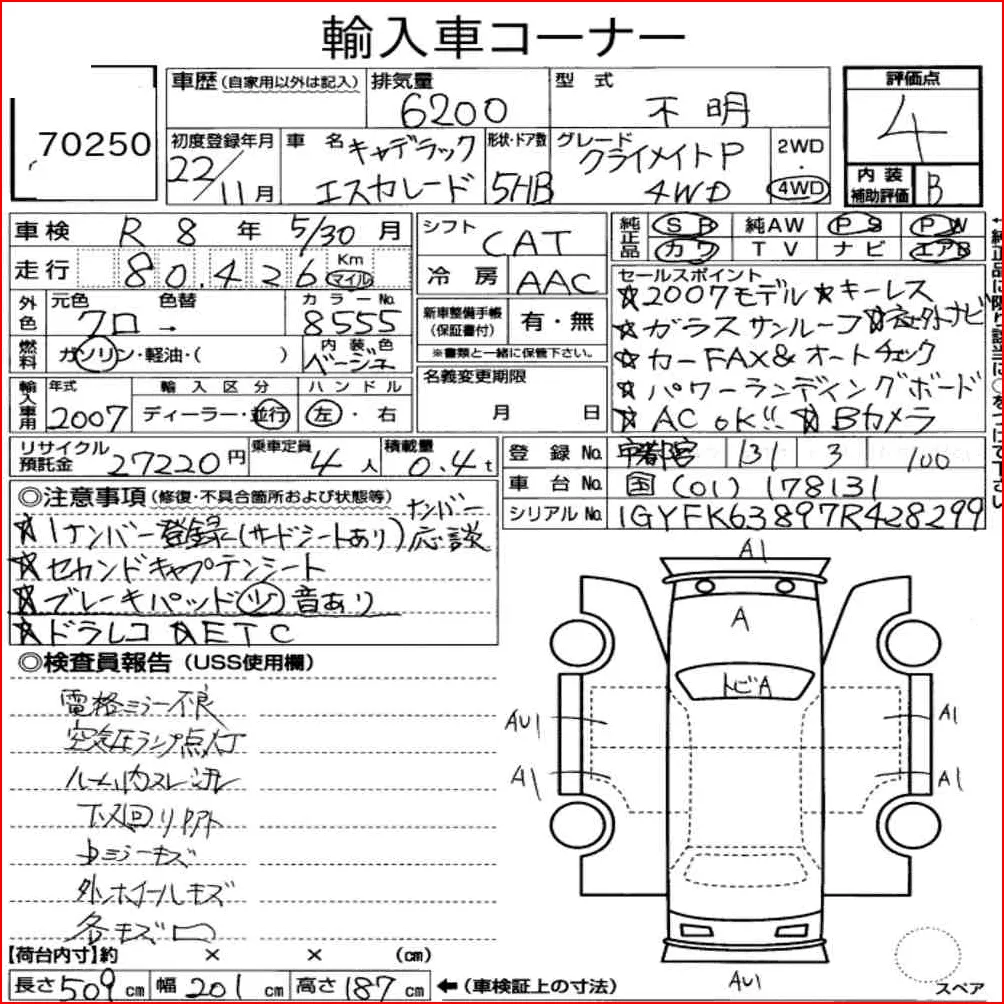 輸入車コーナー
70250
車歴(自家用以外は記入)
排気量 6200
型式 不明
評価点 4
初度登録年月 22/11月
車名 キャデラック エスカレード
形状・ドア数 5HB
グレード クライメイトP 4WD
2WD・4WD
内装補助評価 B
車検 R8年 5/30月
走行 80,426 Km マイル
シフト CAT
冷房 AAC
純正品 SR 純AW PS PW
カワ TV ナビ エアB
外色 元色 クロ → 色替
カラーNo. 8555
燃料 ガソリン・軽油・( )
内装色 ベージュ
新車整備手帳(保証書付) 有・無
※書類と一緒に保管下さい。
セールスポイント
☆2007モデル ☆キーレス
☆ガラスサンルーフ ☆社外ナビ
☆カーFAX&オートチェック
☆パワーランディングボード
☆AC OK!! ☆Bカメラ
輸入車用 年式 2007
輸入区分 ディーラー・並行
ハンドル 左・右
名義変更期限 月 日
リサイクル預託金 27220円
乗車定員 4人
積載量 0.4t
登録No. 宇都宮 131 3 100
車台No. 国(01)178131
シリアルNo. 1GYFK63897R428299
◎注意事項(修復・不具合箇所および状態等)
☆1ナンバー登録(サードシートあり)ナンバー応談
☆セカンドキャプテンシート
☆ブレーキパッド(ツ)音あり
☆ドラレコ ☆ETC
◎検査員報告(USS使用欄)
電格ミラー不良
空気圧ランプ点灯
ルーム内スレ汚レ
下メ回リ
ミラーキズ
外ホイールキズ
各キズ凹
【荷台内寸】約 × × (cm)
長さ509cm 幅201cm 高さ187cm ←(車検証上の寸法)
A1
A
トビA
AU1
A1
A1
A1
AU1
スペア